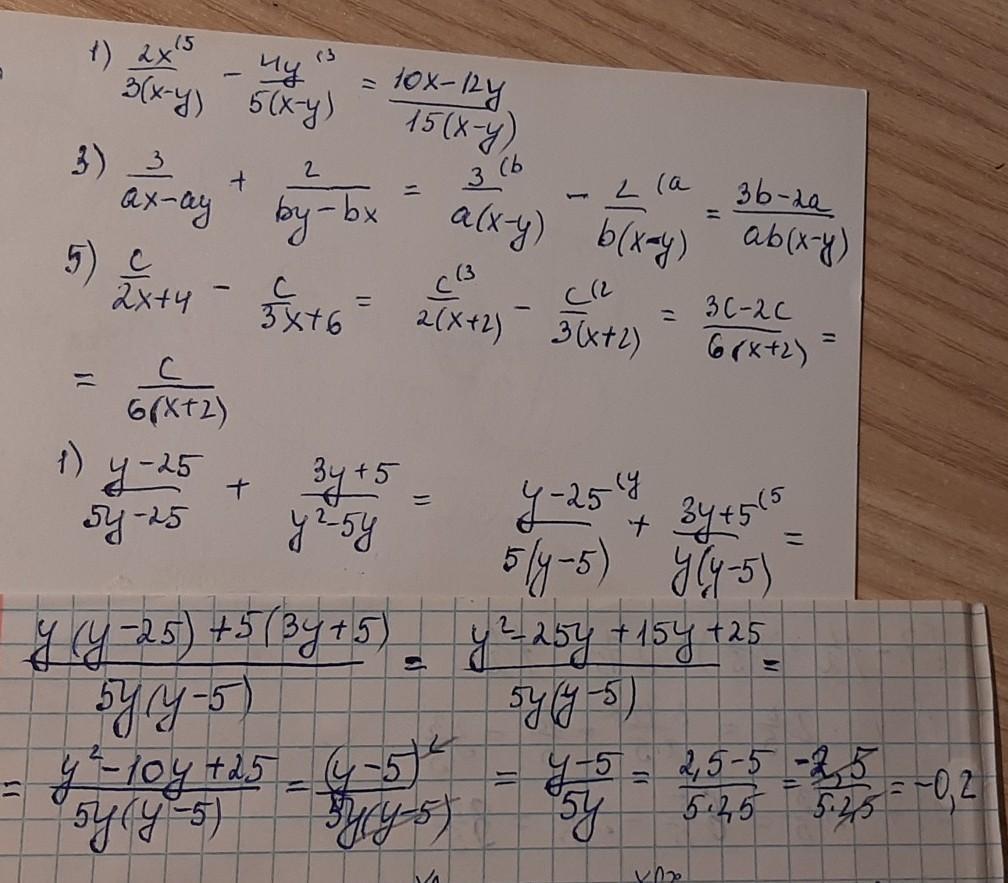 1) 2x(5/3(x-y) - 4y(3/5(x-y) = 10x-12y/15(x-y)
3) 3/ax-ay + 2/by-bx = 3(b/a(x-y) - 2(a/b(x-y) = 3b-2a/ab(x-y)
5) c/2x+4 - c/3x+6 = c(3/2(x+2) - c(2/3(x+2) = 3c-2c/6(x+2) =
= c/6(x+2)
1) y-25/5y-25 + 3y+5/y²-5y = y-25(y/5(y-5) + 3y+5(5/y(y-5) =
y(y-25)+5(3y+5)/5y(y-5) = y²-25y+15y+25/5y(y-5) =
= y²-10y+25/5y(y-5) = (y-5)²/5y(y-5) = y-5/5y = 2,5-5/5·2,5 = -2,5/5·2,5 = -0,2